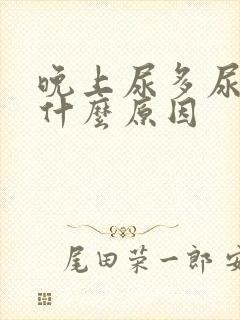 晚上尿多尿
什麼原因
尾田荣一郎 安